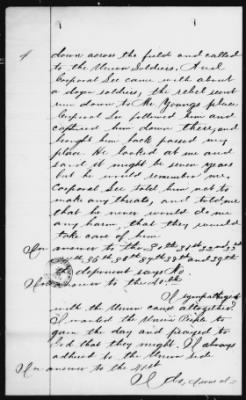 4
down across the field and called
to the Union Soldiers. And
Corporal Lee came with about
a dozen soldiers, the rebel went
run down to Mr Youngs place
Corporal Lee followed him and
captured him down there, and
brought him back passed my
place He looked at me and
said it might be seven years
but he would remember me.
Corporal Lee told him not to
make any threats, and told me
that he never would do me
any harm, that they would
take care of him.
In answer to the 30th 31st 32nd 33rd
35th 36th 37th 38th and 39th
deponent says No
In answer to the 40th
I sympathized
with the Union cause altogether
I wanted the Union People to
gain the day and prayed to
God that they might. I always
adhered to the Union side
In answer to the 41st